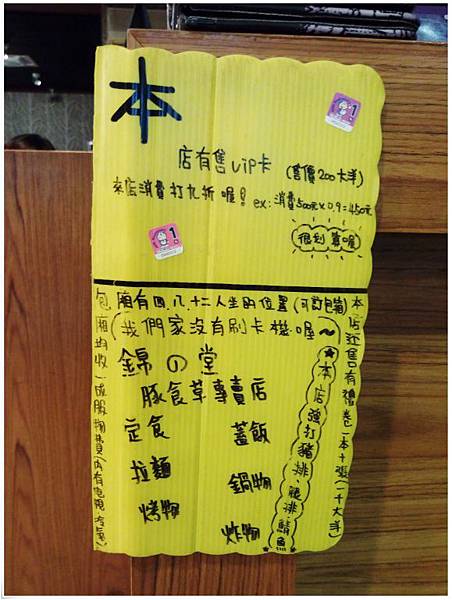 本
店有售vip卡 (售價200大洋)
來店消費打九折喔! ex:消費500元x0.9=450元
很划算喔
包廂有四.八.十二人坐的位置(可訂包廂)
(我們家沒有刷卡機喔~
錦の堂
豚食草專賣店
定食
蓋飯
拉麵
鍋物
烤物
炸物
★本店強打豬排、腿排、鯖魚★
本店还售有禮卷一本十張(一千大洋)
包廂均收一成服務費(內有電視冷氣)
1
1